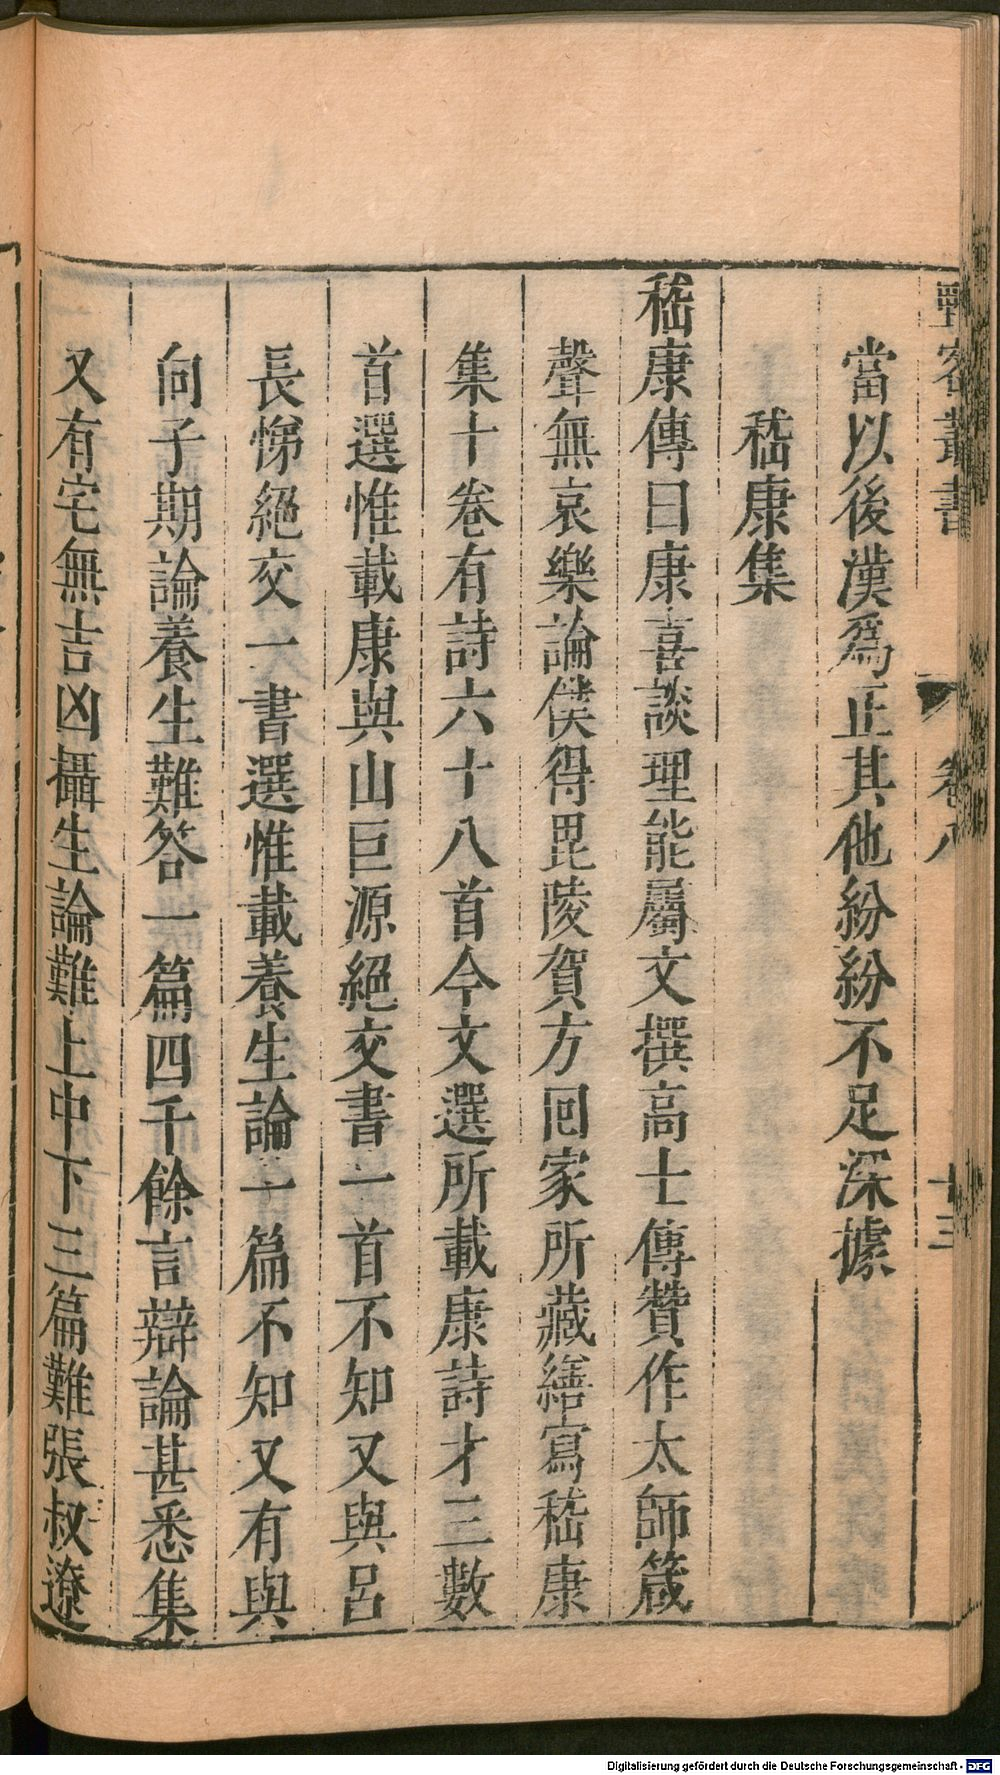 野客叢書 卷八 十三
當以後漢爲正其他紛紛不足深據
嵇康集
嵇康傳曰康喜談理能屬文撰高士傳贊作太師箴
聲無哀樂論僕得毘陵賀方回家所藏繕寫嵇康
集十卷有詩六十八首今文選所載康詩才三數
首選惟載康與山巨源絕交書一首不知又與呂
長悌絕交一書選惟載養生論一篇不知又有與
向子期論養生難答一篇四千餘言辯論甚悉集
又有宅無吉凶攝生論難上中下三篇難張叔遼
Digitalisierung gefördert durch die Deutsche Forschungsgemeinschaft - DFG